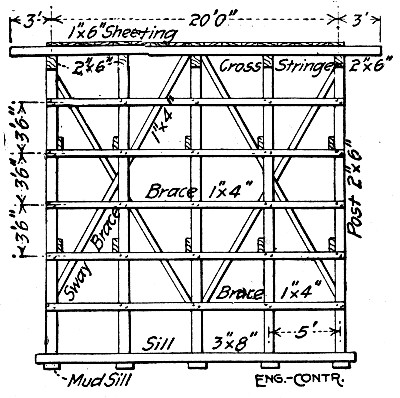 3' 20'0" 3'
1"x6" Sheeting
2"x6" Cross Stringe 2"x6"
1"x4"
3'6"
3'6"
3'6"
Brace 1"x4"
Post 2"x6"
Sway Brace
Brace 1"x4"
5'
Sill 3"x8"
Mud Sill
ENG.-CONTR.